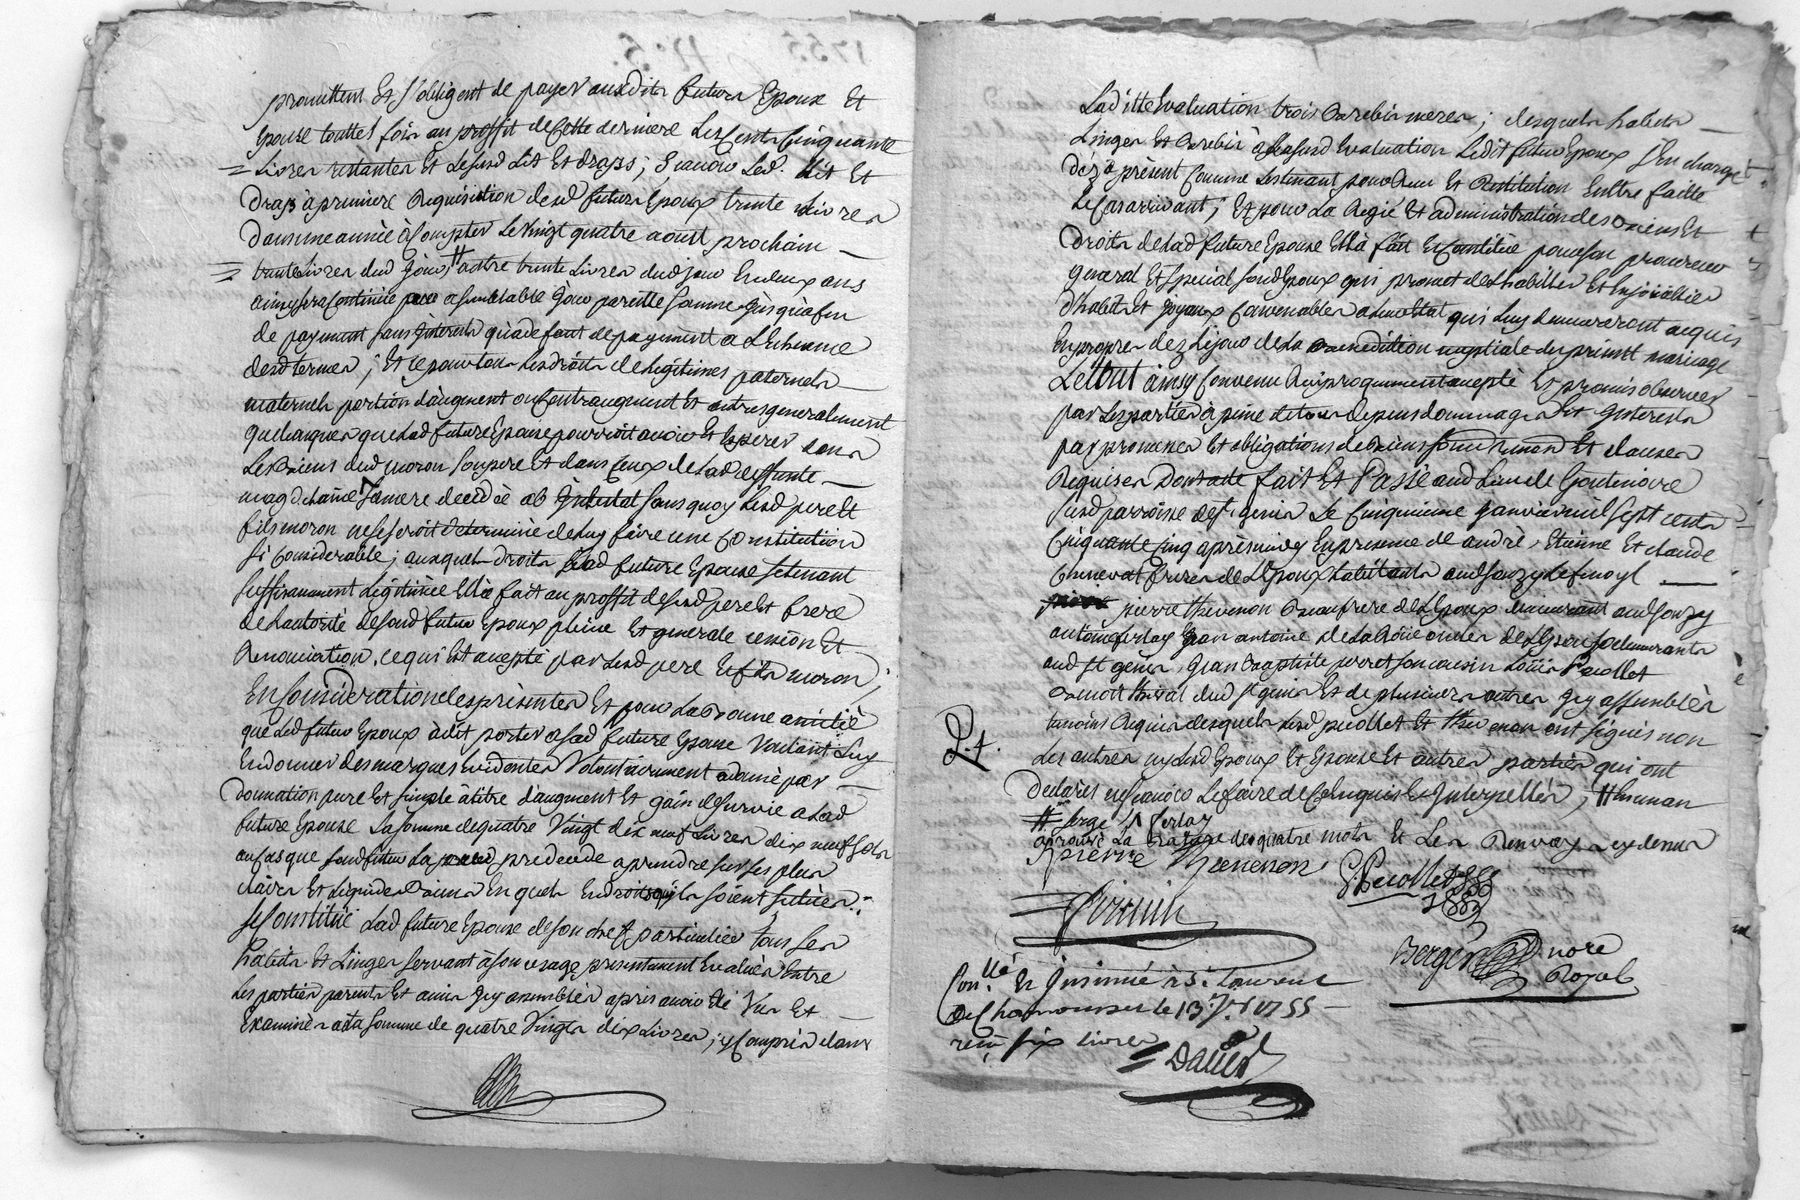 promettent Et s'obligent de payer auxdits futurs Epoux Et
Epouse touttes fois au proffit de Cette derniere Les Cents Cinquante
Livres restantes Et Lesusd Lit Et draps; Scavoir Led. Lit Et
Draps à premiere Requisition desd futurs Epoux trente Livres
Dans une année à Compter Le vingt quatre aoust prochain
trente Livres dud Jour, # autre trente Livres dud jour En deux ans
ainsy sera Continué a semblable Jour pareille somme Jusqu'a fin
de payment sans Jnterests qu'a defaut de payement a L'Echeance
desd termes; Et ce pour tous Les droits de Légitimes paternels
maternels portion d'augment ou Contraugment Et autres generalement
quelconques que Lad future Epouse pourroit avoir Et Esperer dans
Les Biens dud moron son pere Et dans Ceux de Lad deffunte
magdelaine sa mere decedée ab Jntestat sans quoy Lesd pere Et
fils moron ne se seroit determiné de Luy faire une Constitution
si Considerable; auxquels droits Lad future Epouse se tenant
suffisamment Légitimée Elle fait au proffit desesd pere Et frere
de Lautorité desond futur Epoux pleine Et generale cession Et
Renonciation, ce qui Est accepté par Lesd pere Et fils moron;
En Considération des présentes Et pour La Bonne amitié
que Led futur Epoux a dit porter a sad future Epouse Voulant Luy
En donner des marques Evidentes Volontairement a donné par
donnation pure Et simple à titre d'augment Et gain de survie a Lad
future Epouse La somme de quatre Vingt dix neuf Livres dix neuf sols
au Cas que sond futur La predecede a prendre sur ses plus
claires Et Liquides Biens En quels Endroits qu'ils soient situés:
se Constitue Lad future Epouse de son chef particulier tous ses
habits Et Linges servant à son usage presentement Evalués Entre
Les parties parents Et amis Jcy assemblés apres avoir Eté Vus Et
Examinés a La somme de quatre Vingts dix Livres; y Compris dans
Laditte Evaluation trois Brebis meres; desquels habits
Linges Et Brebis à Lasusd Evaluation Ledit futur Epoux s'En charge
déz à présent Comme Les tenant pour Reçu Et Restitution En Etre faitte
Le Cas arrivant; Et pour La Regie Et administration des Biens Et
Droits de Lad future Epouse Elle à fait Et Constitué pour son procureur
general Et special sond Epoux qui promet de Lhabiller Et Enjoialler
d'habits Et Joyaux Convenables a son Etat qui Luy demeureront acquis
En propres déz Le jour de La Benediction nuptiale du présent mariage
Le tout ainsy Convenu Réciproquement accepté Et promis observer
par Les parties à peine de tous depens dommages Et Jnterests
par promesses Et obligations de Biens soumissions Et clauses
Requises Dont acte fait Et Passé aud Lieu de Goutenoire
susd parroisse de St genis Le Cinquieme Janvier mil sept cents
Cinquante Cinq après midy En présence de andré, Etienne Et claude
freres de L'Epoux habitants aud
pierre thevenon Beaufrere de L'Epoux demeurant aud
antoine ferlay Jean antoine de La Roüe oncles de L'Epouse demeurants
aud St genis, Jean Baptiste perret son cousin Loüis Pecollet
Benoit dud St genis Et de plusieurs autres Jcy assemblés
temoins Requis desquels Lesd pecollet Et thevenon ont signés non
Les autres ny Lesd Epoux Et Epouse Et autres parties qui ont
declarés ne scavoir Le faire de Ce Enquis Et Jnterpellés;
aprouvé La Rature des quatre mots Et Les Renvoys cy dessus
pierre thevenon
L. Pecollet
Bergeron nore
Royal
Con.llé Et Jnsinué à St Laurent
de Chamousset le 13 J.er 1755
reçu six livres
David